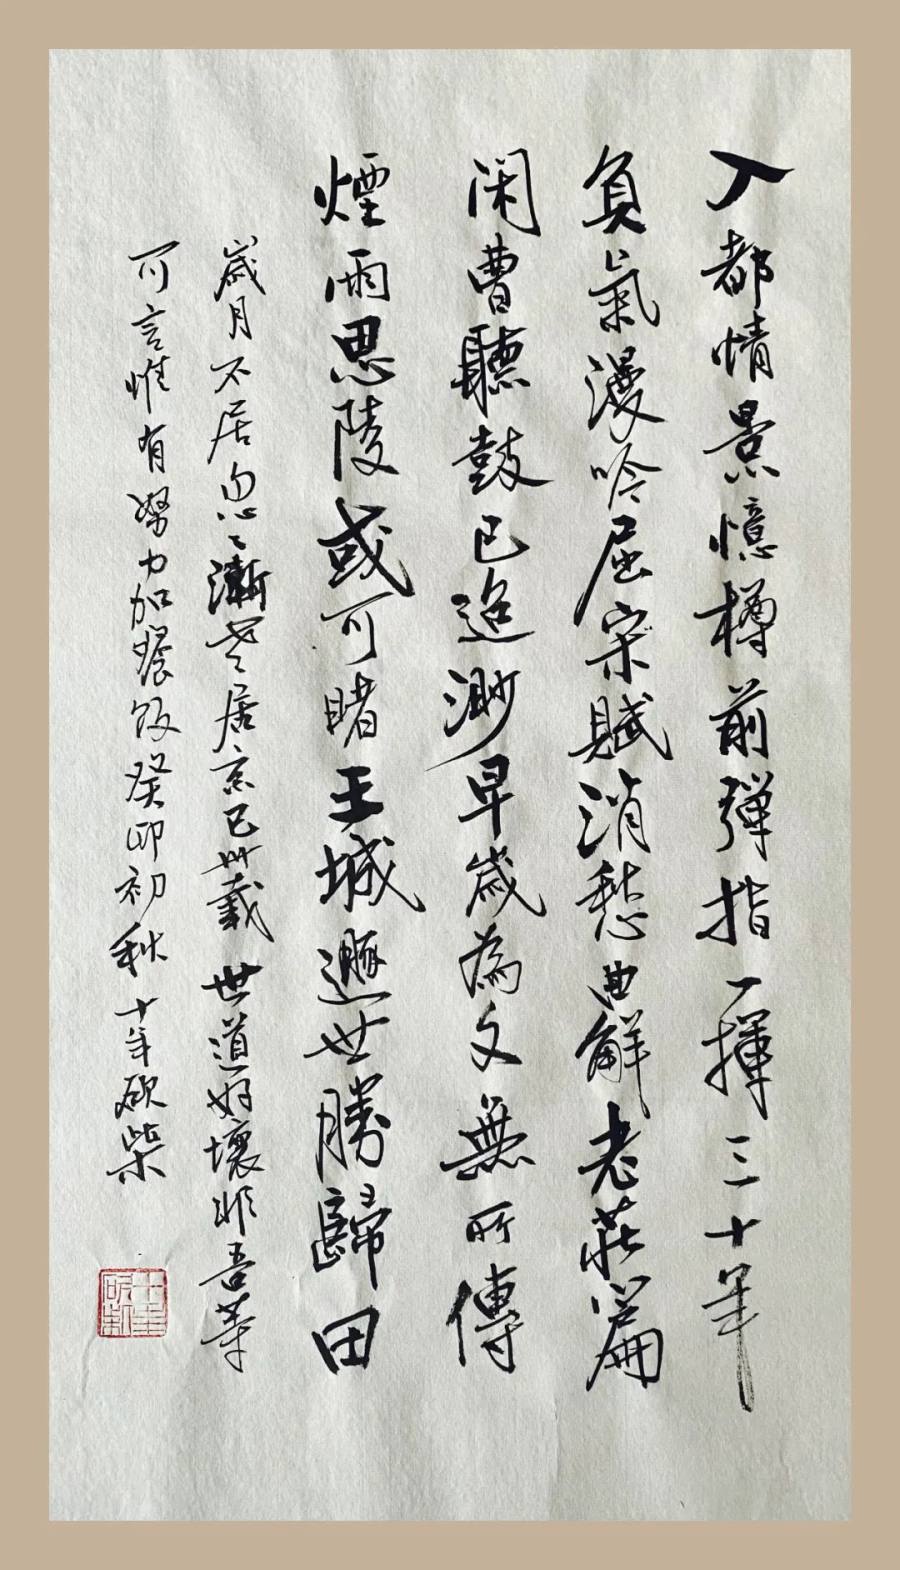 入都情景憶樽前彈指一揮三十年
負氣漫吟屈宋賦消愁曲解老莊篇
閑曹聽鼓已迢渺早歲為文無所傳
煙雨思陵或可睹王城遯世勝歸田
歲月不居忽々漸老居京已卅載世道好壞非吾等
可言惟有努力加餐飯癸卯初秋十年砍柴
十年
砍柴